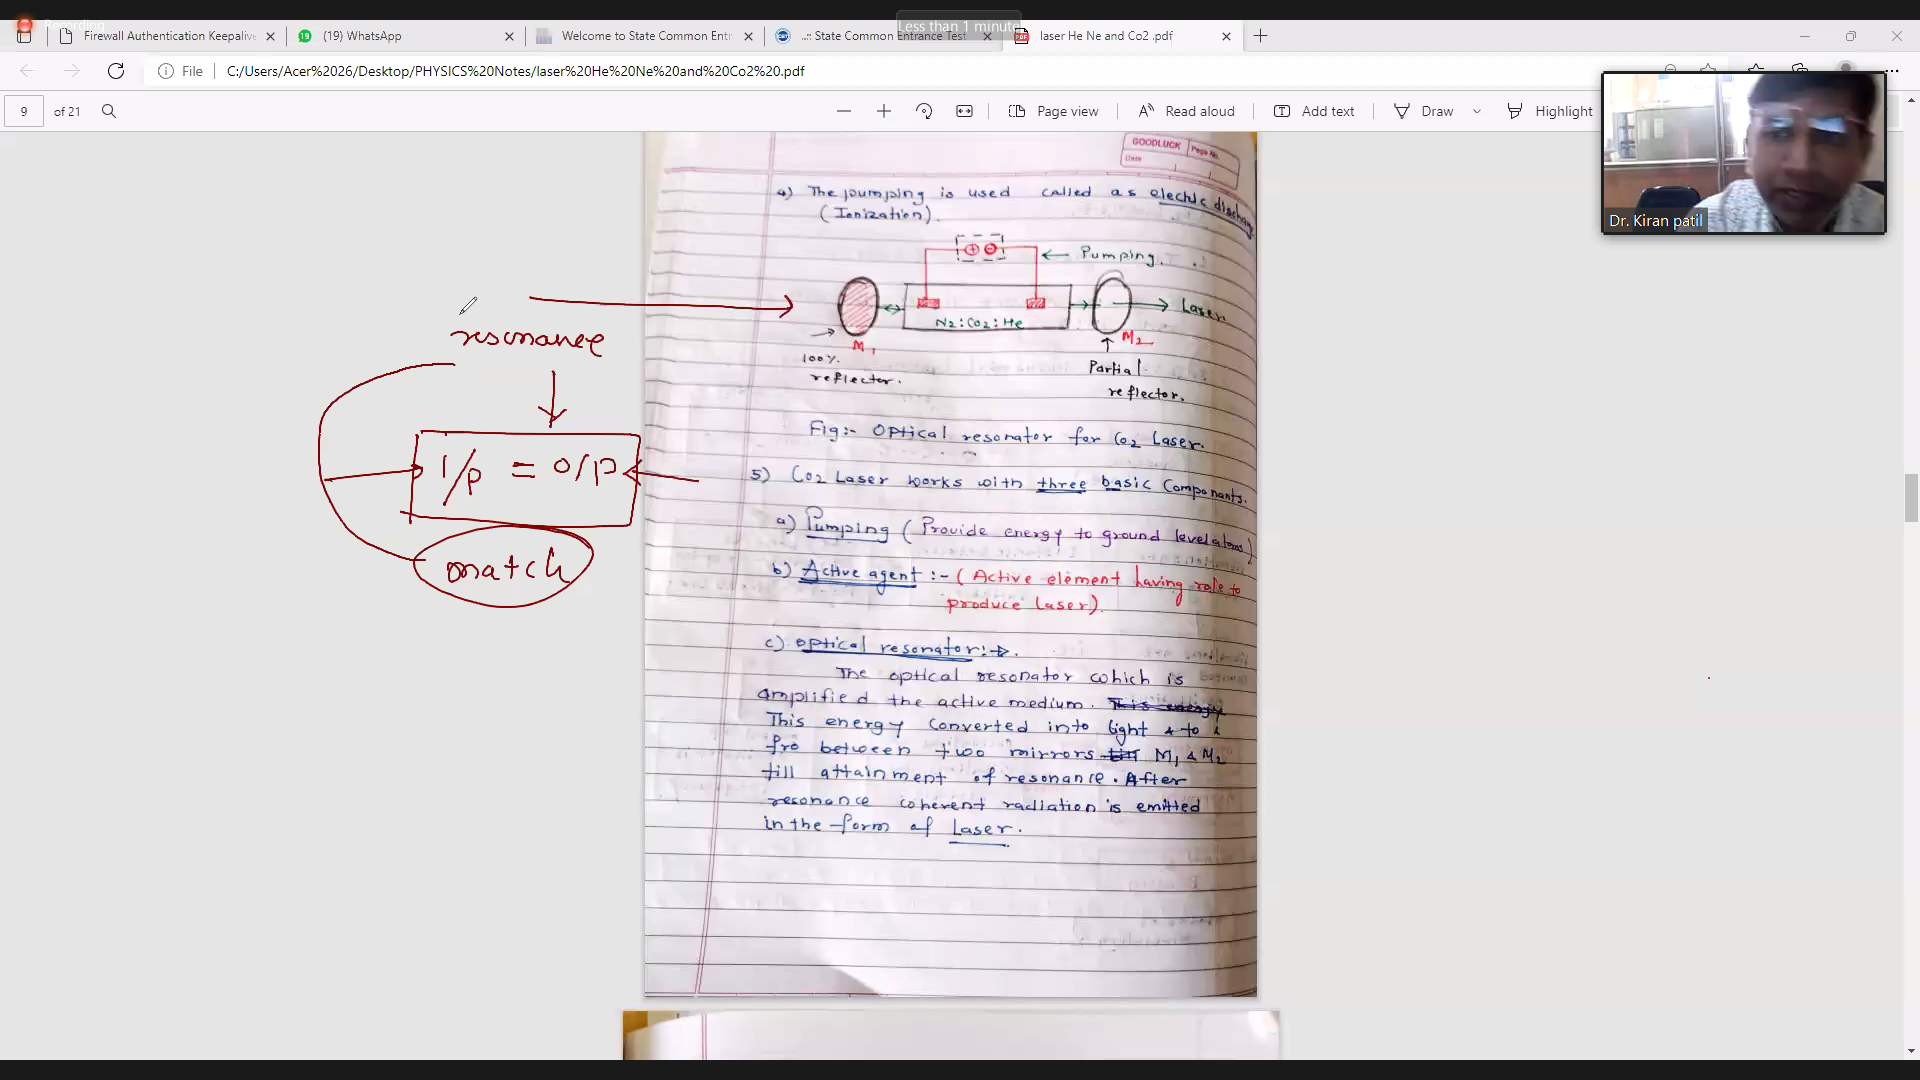 Recording
Less than 1 minute
Firewall Authentication Keepaliv
(19) WhatsApp
Welcome to State Common Entr
..:: State Common Entrance Test
laser He Ne and Co2 .pdf
File
C:/Users/Acer%2026/Desktop/PHYSICS%20Notes/laser%20He%20Ne%20and%20Co2%20.pdf
9 of 21
Page view
Read aloud
Add text
Draw
Highlight
Dr. Kiran patil
GOODLUCK
Page No.
Date
4) The pumping is used called as electric discharg
(Ionization).
+ -
← Pumping.
N2:Co2:He
Laser
M1
M2
100%
reflector.
Partial
reflector.
Fig:- Optical resonator for Co2 Laser.
5) Co2 Laser works with three basic Components.
a) Pumping (Provide energy to ground level atoms)
b) Active agent :- (Active element having role to
produce laser)
c) optical resonator:→.
The optical resonator which is
amplified the active medium. This energy
This energy converted into light & to &
fro between two mirrors till M1 & M2
till attainment of resonance. After
resonance coherent radiation is emitted
in the form of Laser.
resonance
I/p = O/P
match